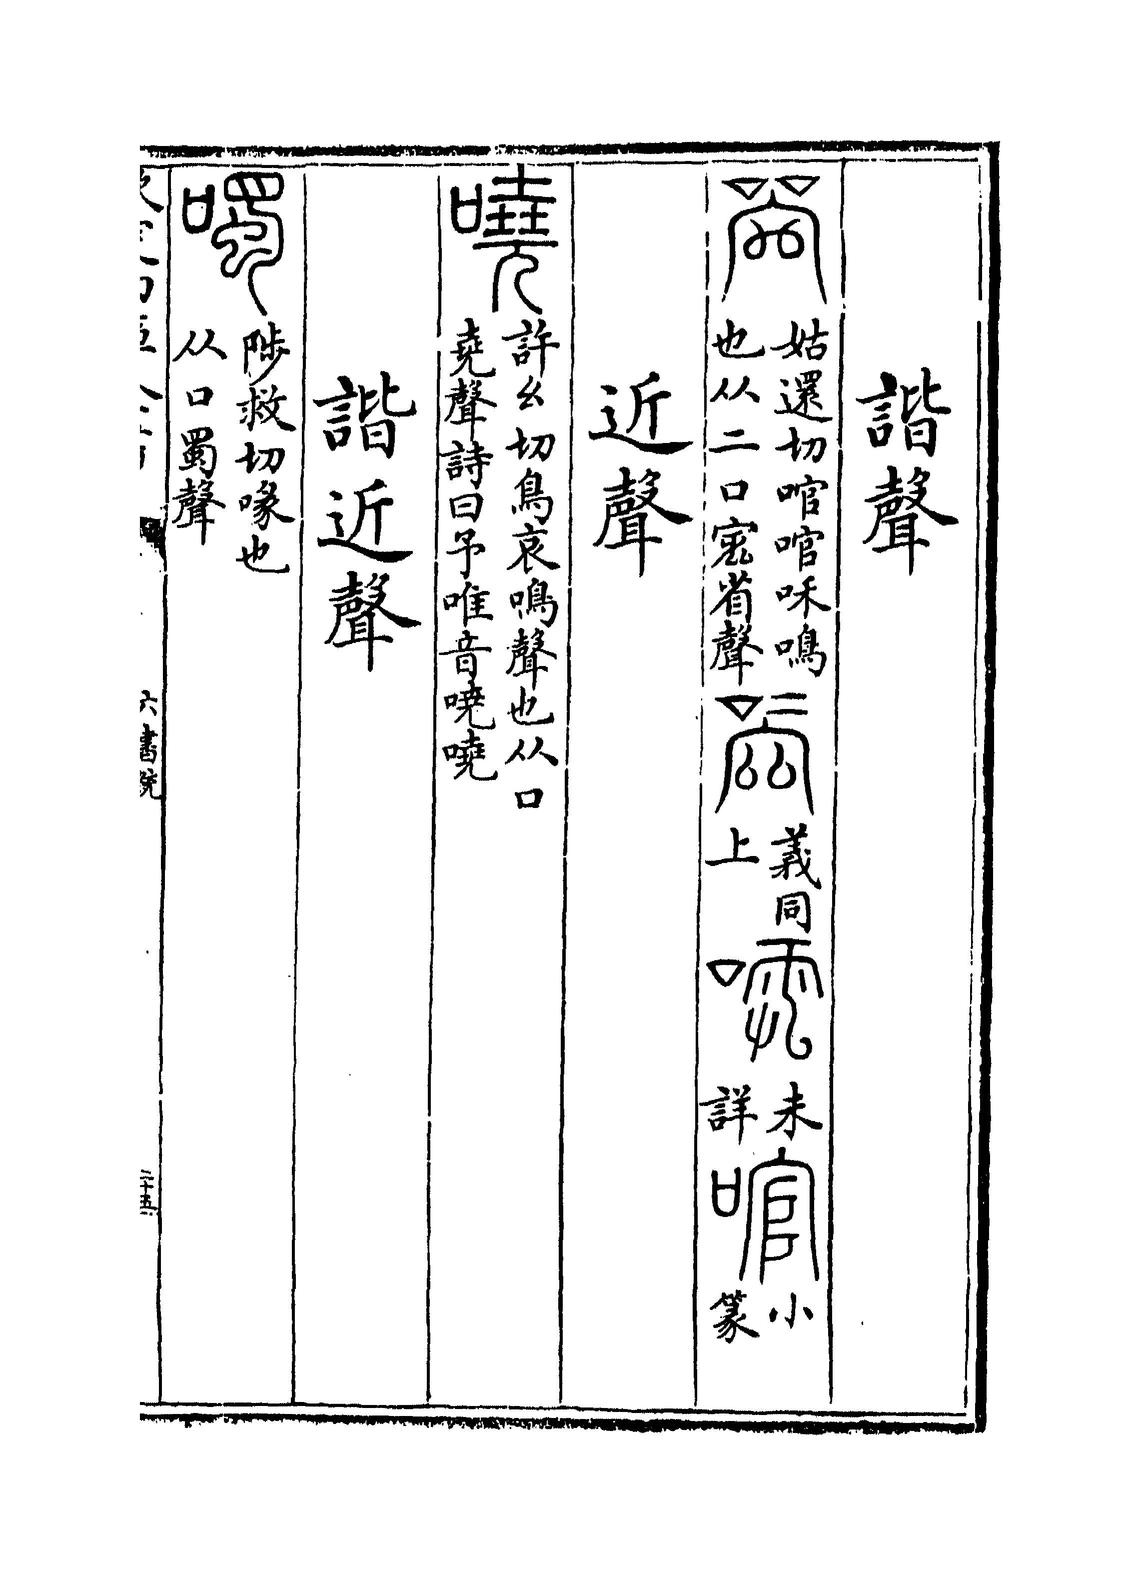 諧聲
姑還切喧喧和鳴
也从二口寍省聲
義同
上
未
詳
小
篆
近聲
嘵許幺切鳥哀鳴聲也从口
堯聲詩曰予唯音嘵嘵
諧近聲
噣陟救切喙也
从口蜀聲
六書統
二十五